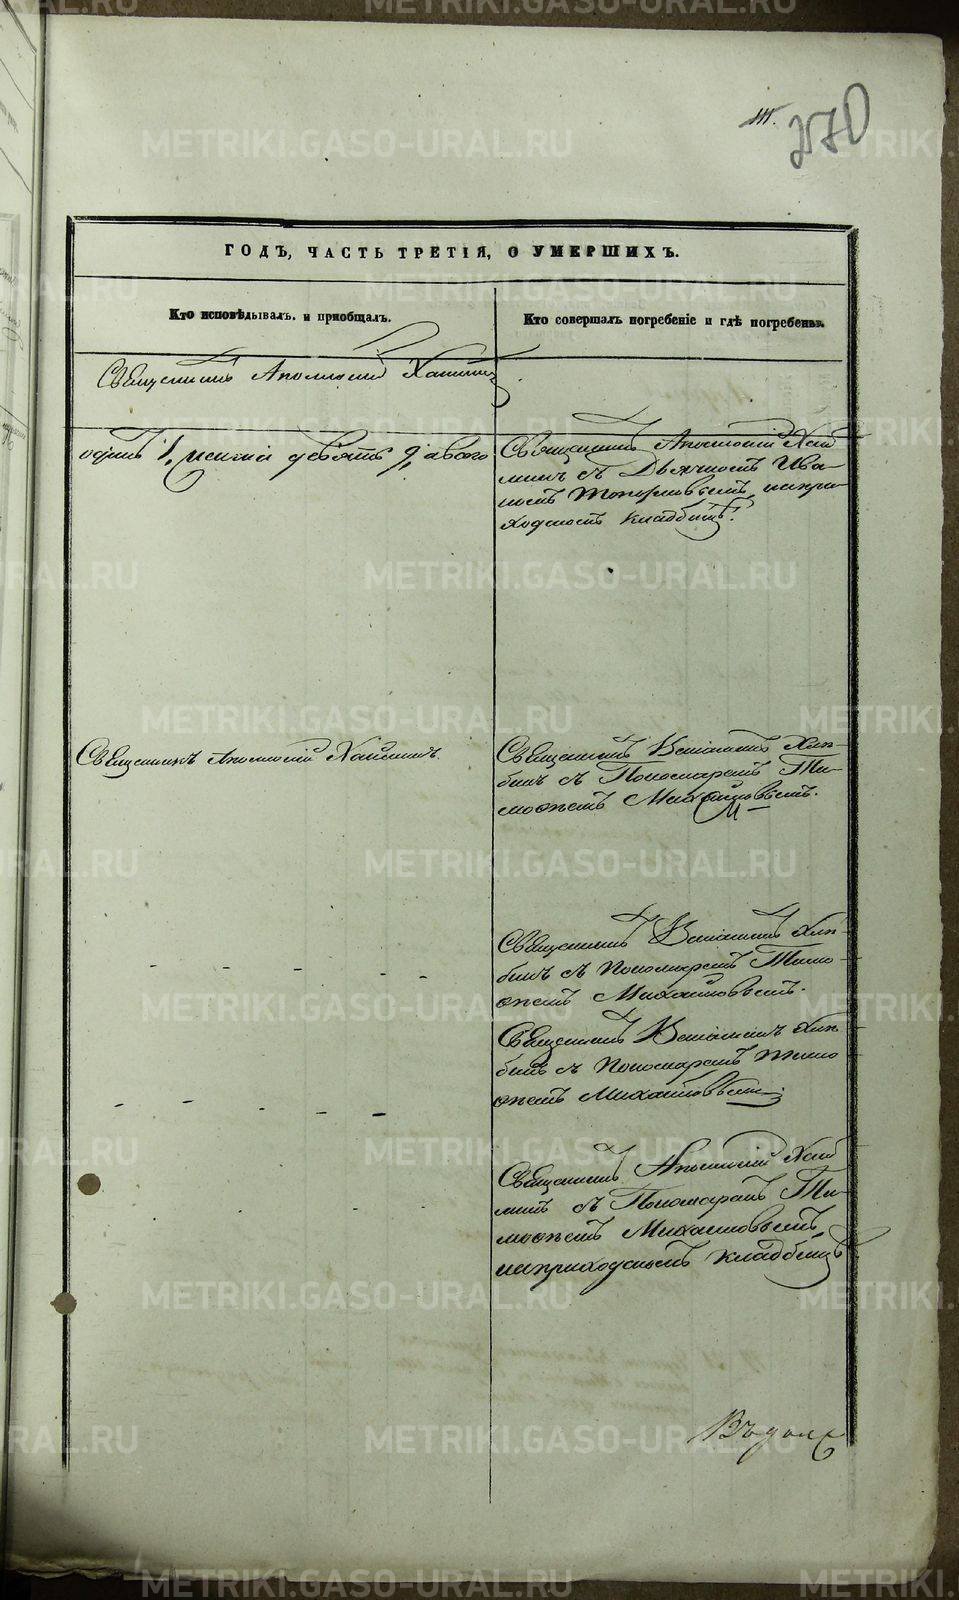 270
ГОДЪ, ЧАСТЬ ТРЕТІЯ, О УМЕРШИХЪ.
Кто исповѣдывалъ. и пріобщалъ.
Кто совершалъ погребеніе и гдѣ погребены.
Священникъ Аполлоній
одинъ 1, женска девять 9, обоего
Священникъ Аполлоній Хай
минъ съ Дьячкомъ Ива-
номъ
ходскомъ кладбищѣ.
Священникъ Аполлоній Хайминъ.
Священникъ Веніаминъ Хлѣ-
бинъ съ Пономаремъ Ти-
мофеемъ Михайловымъ.
Священникъ Веніаминъ Хлѣ-
бинъ съ Пономаремъ Тимо-
феемъ Михайловымъ.
Священникъ Веніаминъ Хлѣ-
бинъ съ Пономаремъ Тимо
феемъ Михайловымъ
Священникъ Аполлоній Хай
минъ съ Пономаремъ Ти-
мофеемъ Михайловымъ
наприходскомъ кладбищѣ
METRIKI.GASO-URAL.RU